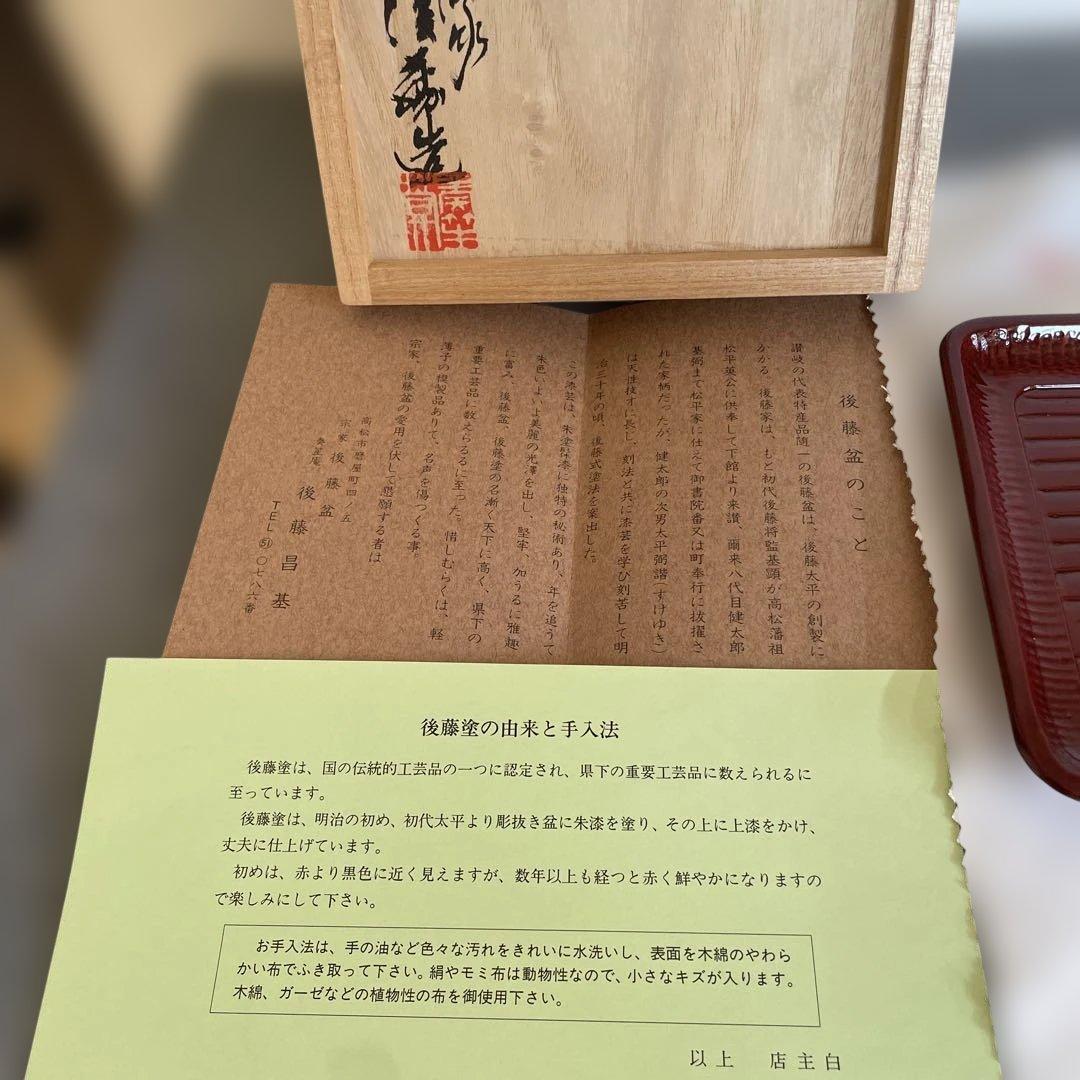 後藤盆のこと
讃岐の代表特産品随一の後藤盆は、後藤太平の創製に
かかる 後藤家は、もと初代後藤将監基顕が高松藩祖
松平英公に供奉して下館より来讃、爾来八代目健太郎
基弼まで松平家に仕えて御書院番又は町奉行に抜擢さ
れた家柄だったが、健太郎の次男太平弥諧(すけゆき)
は天性技すに長じ、刻法と共に漆芸を学び刻苦して明
治三十年の頃、後藤式塗法を案出した。
この漆芸は、朱塗髹漆に独特の秘術あり、年を追うて
朱色いよいよ美麗の光澤を出し、堅牢、加うるに雅趣
に富み、後藤盆、後藤塗の名漸く天下に高く、県下の
重要工芸品に数えらるるに至った。惜しむらくは、軽
薄子の模製品ありて、名声を傷つくる事。
宗家、後藤盆の愛用を伏して懇願する者は
高松市磨屋町四ノ五
宗家 後藤盆
後藤昌基
TEL(51)〇七八六番
後藤塗の由来と手入法
後藤塗は、国の伝統的工芸品の一つに認定され、県下の重要工芸品に数えられるに
至っています。
後藤塗は、明治の初め、初代太平より彫抜き盆に朱漆を塗り、その上に上漆をかけ、
丈夫に仕上げています。
初めは、赤より黒色に近く見えますが、数年以上も経つと赤く鮮やかになりますの
で楽しみにして下さい。
お手入法は、手の油など色々な汚れをきれいに水洗いし、表面を木綿のやわら
かい布でふき取って下さい。絹やモミ布は動物性なので、小さなキズが入ります。
木綿、ガーゼなどの植物性の布を御使用下さい。
以上 店主白